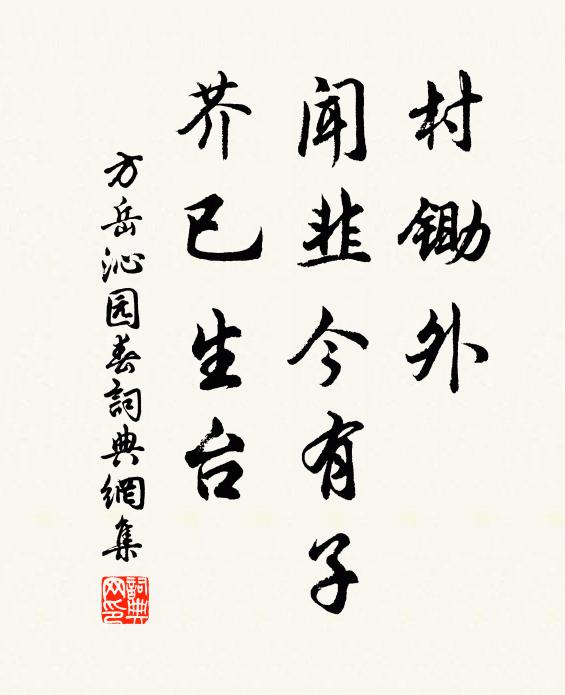 村锄外
闻韭今有子
芥已生台
方岳沁园春詞典網集
詞典
网印